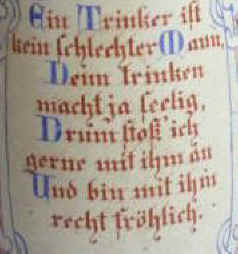 Ein Trinker ist
kein schlechter Mann,
Denn trinken
macht ja seelig,
Drum stoß' ich
gerne mit ihm an
Und bin mit ihm
recht fröhlich.